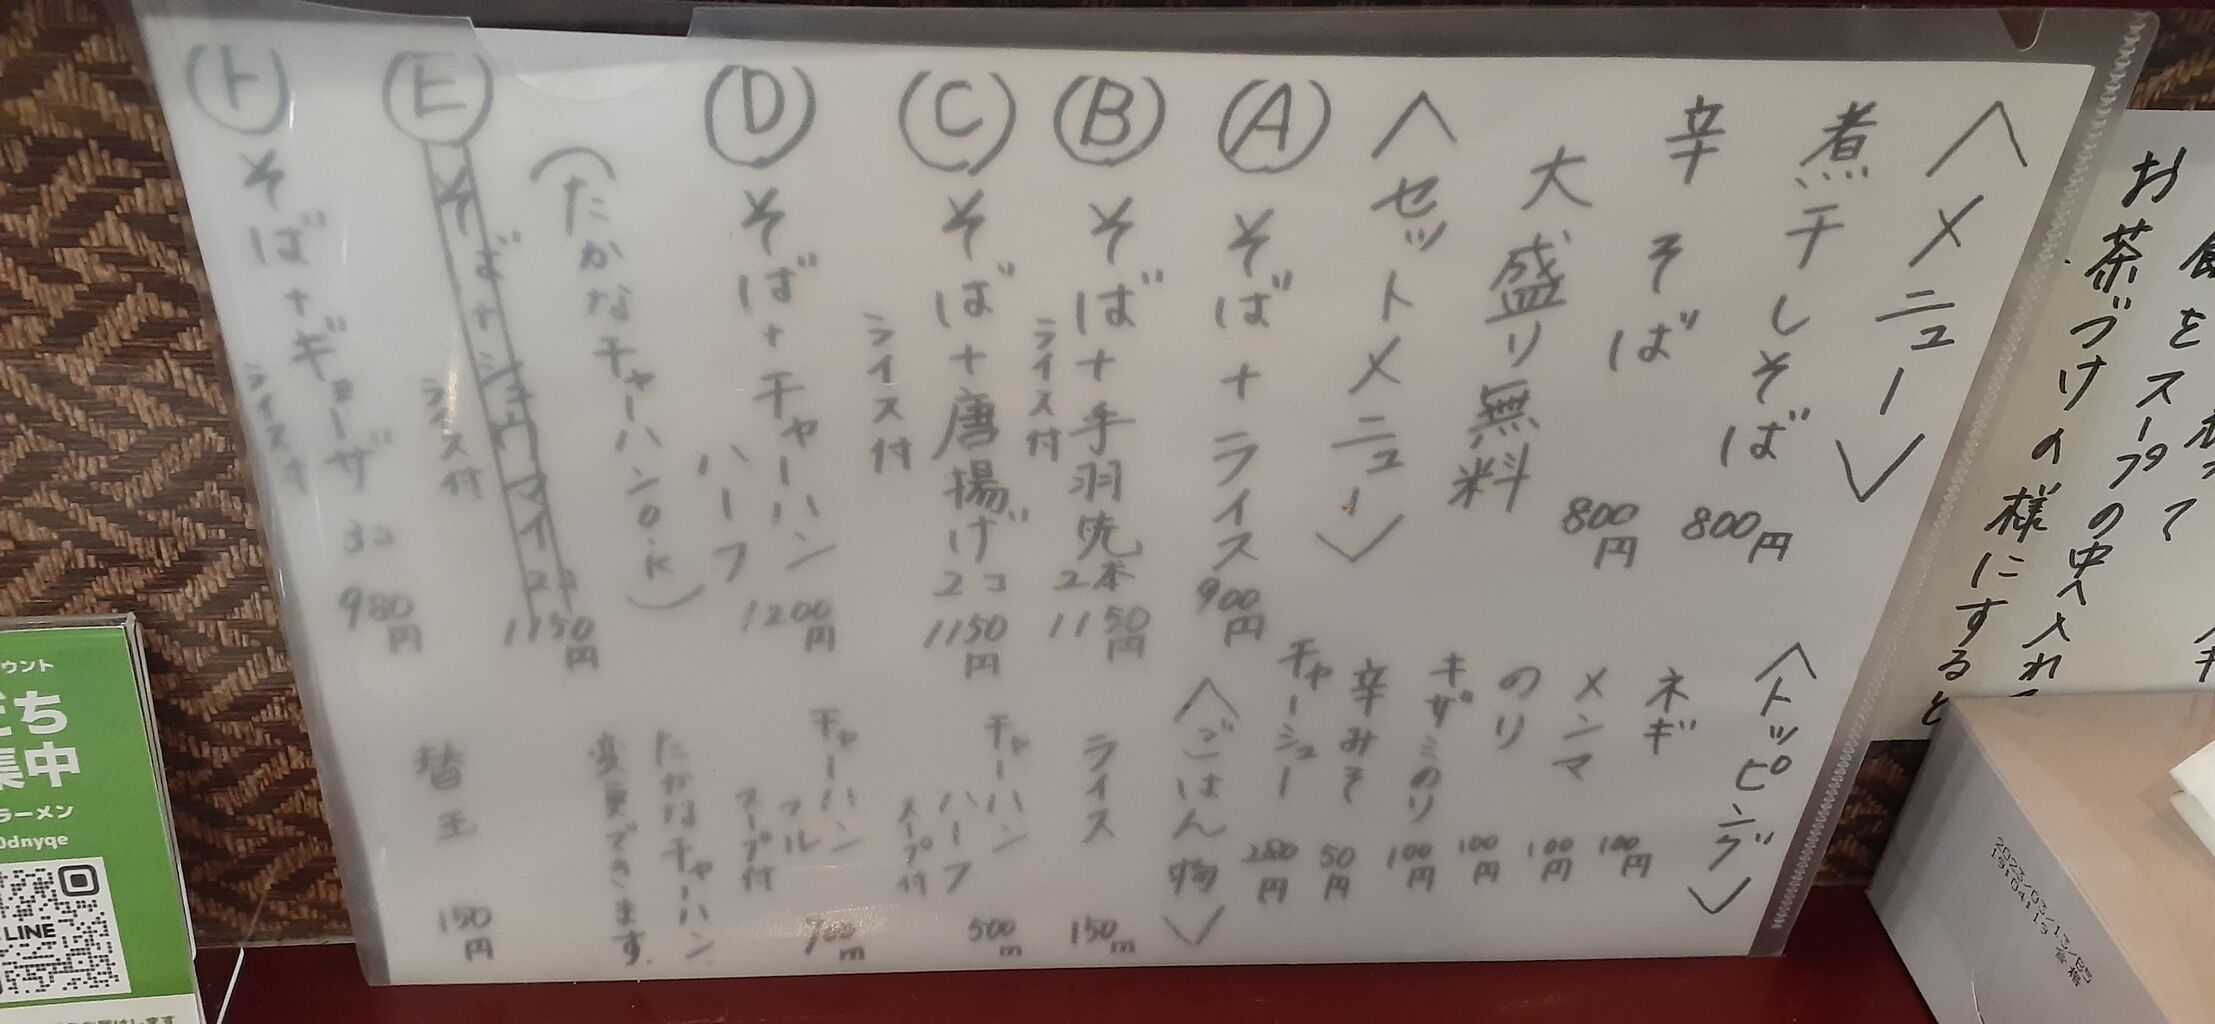 飯を
スープの中へ入れ
お茶づけの様にすると
〈メニュー〉
煮干しそば 800円
辛そば 800円
大盛り無料
〈セットメニュー〉
Ⓐ そば+ライス 900円
Ⓑ そば+手羽先 2本 1150円
ライス付
Ⓒ そば+唐揚げ 2コ 1150円
ライス付
Ⓓ そば+チャーハン 1200円
ハーフ
(たかなチャーハンO.K)
Ⓔ そば+シュウマイ 2コ 1150円
ライス付
Ⓕ そば+ギョーザ 3コ 980円
ライス付
〈トッピング〉
ネギ 100円
メンマ 100円
のり 100円
キザミのり 100円
辛みそ 50円
チャーシュー 280円
〈ごはん物〉
ライス 150円
チャーハン
ハーフ 500円
スープ付
チャーハン
フル 700円
スープ付
たかなチャーハン
変更できます.
替玉 150円
ウント
だち
集中
ラーメン
0dnyqe
LINE
2023/03/13/BE
19:04:19 合格